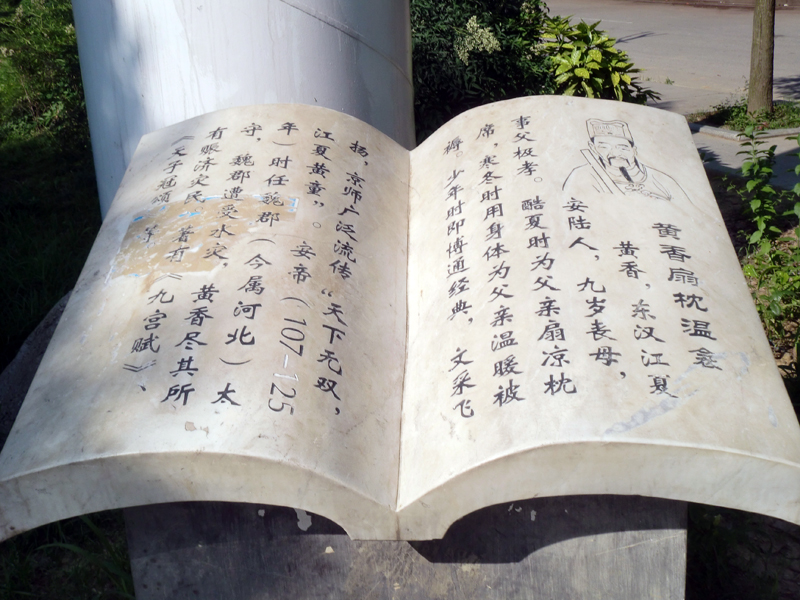 黄香扇枕温衾
黄香，东汉江夏
安陆人，九岁丧母，
事父极孝。酷夏时为父亲扇凉枕
席，寒冬时用身体为父亲温暖被
褥。少年时即博通经典，文采飞
扬，京师广泛流传“天下无双，
江夏黄童”。安帝（107—125
年）时任魏郡（今属河北）太
守，魏郡遭受水灾，黄香尽其所
有赈济灾民。著有《九宫赋》、
《天子冠颂》等